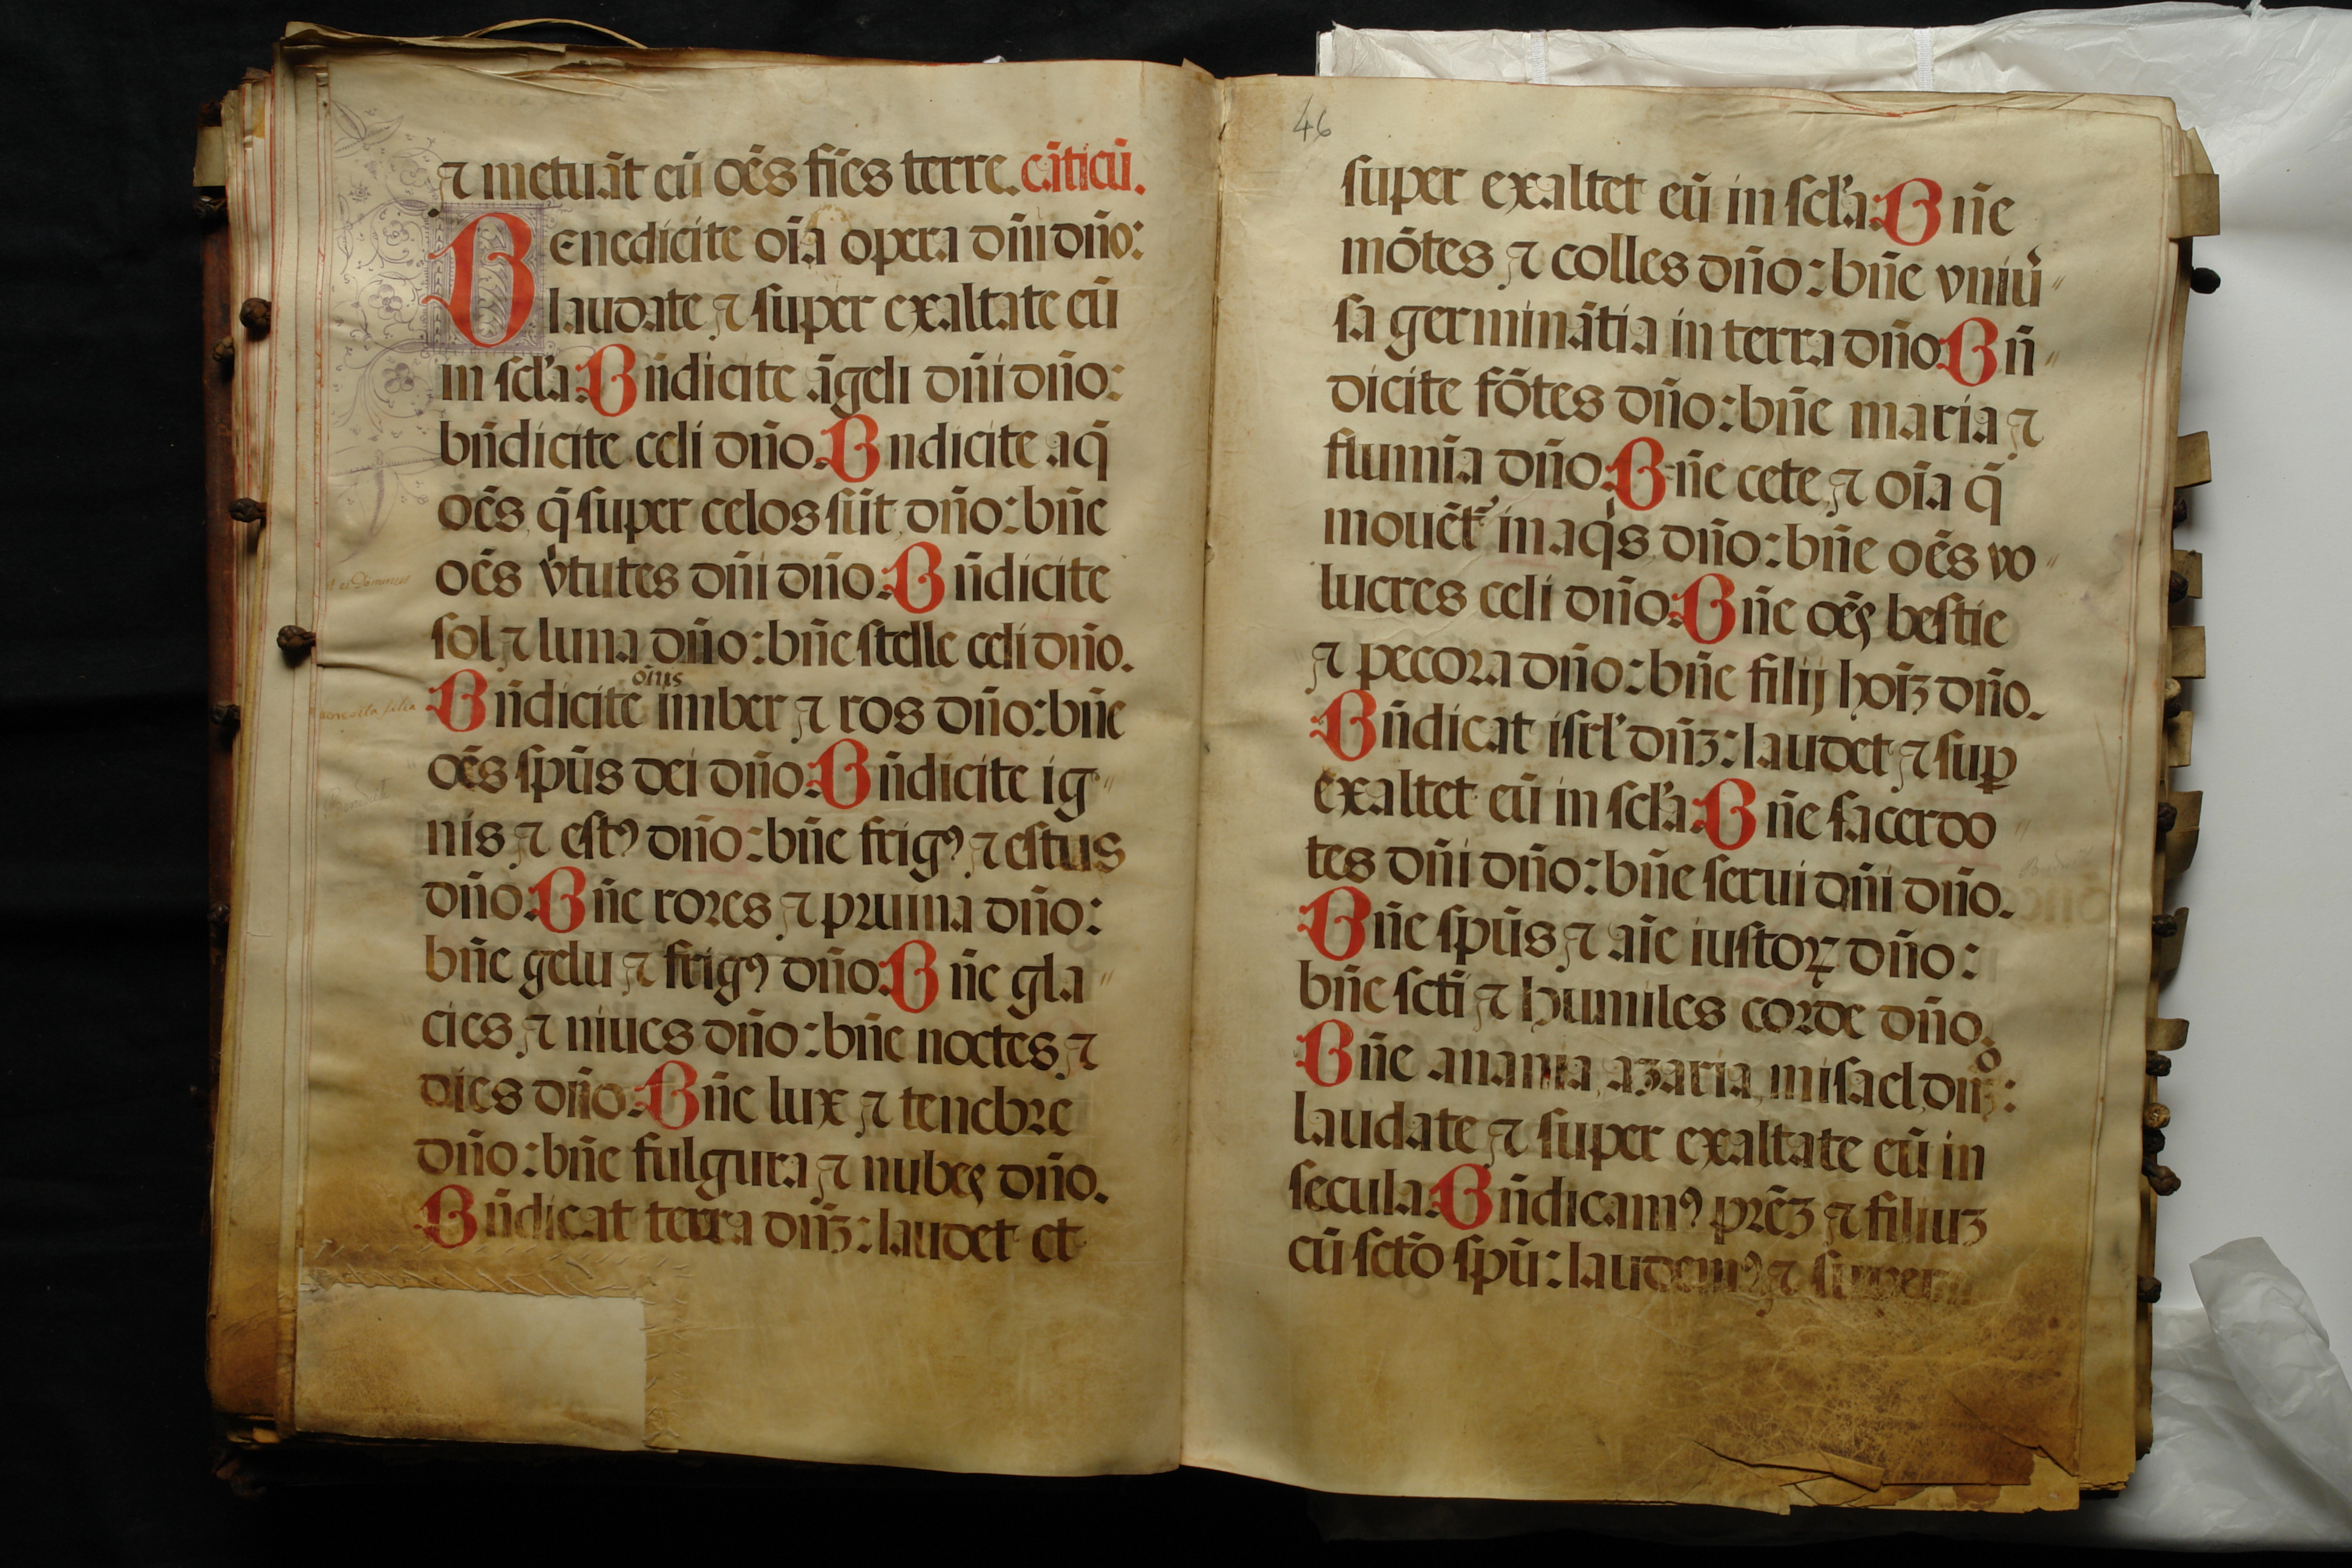 ⁊ metuāt eū oēs fīes terre. cāticū.
Benedicite oīa opera dñi dño:
laudate ⁊ super exaltate eū
in scl'a: Bñdicite āgeli dñi dño:
bñdicite celi dño. Bndicite aq̄
oēs q̄ super celos sūt dño: bñe
oēs v̓tutes dñi dño. Bñdicite
sol ⁊ luna dño: bñe stelle celi dño.
oīus
Bñdicite imber ⁊ ros dño: bñe
oēs spūs dei dño. Bñdicite ig"
nis ⁊ estꝰ dño: bñe frigꝰ ⁊ estus
dño. Bñe rores ⁊ pruina dño:
bñe gelu ⁊ frigꝰ dño. Bñe gla"
cies ⁊ niues dño: bñe noctes ⁊
dies dño. Bñe lux ⁊ tenebre
dño: bñe fulgura ⁊ nubes dño.
Bñdicat terra dñꝫ: laudet et
46
super exaltet eū in scl'a: Bñe
mōtes ⁊ colles dño: bñe vniu̓"
sa germinātia in terra dño. Bñ"
dicite fōtes dño: bñe maria ⁊
flumīa dño. Bñe cete ⁊ oīa q̄
mouēt᷑ in aqⁱs dño: bñe oēs vo"
lucres celi dño. Bñe oēs bestie
⁊ pecora dño: bñe filij hoīꝫ dño.
Bñdicat isrl' dñꝫ: laudet ⁊ suꝑ
exaltet eū in scl'a: Bñe sacerdo"
tes dñi dño: bñe serui dñi dño.
Bñe spūs ⁊ aīe iustoꝝ dño:
bñe scti ⁊ humiles corde dño.
o
Bñe anania, azaria, misael, dñꝫ:
laudate ⁊ super exaltate eū in
secula. Bñdicamꝰ prēꝫ ⁊ filiuꝫ
cū sctō spū: laudemꝰ ⁊ super